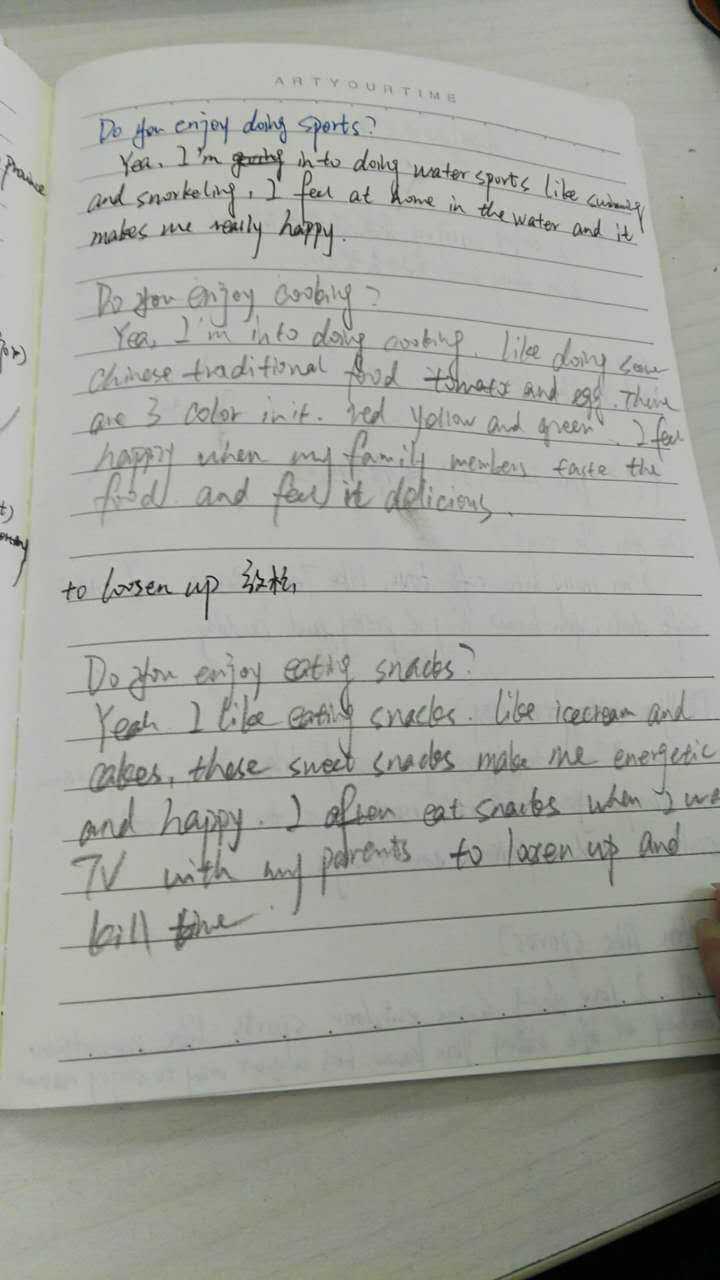 ARTYOURTIME
Do you enjoy doing sports?
Yea, I'm going into doing water sports like
and snorkeling, I feel at home in the water and it
makes me really happy.
Do you enjoy cooking?
Yea, I'm into doing cooking. Like doing some
Chinese traditional food tomato and egg. There
are 3 color in it. red yollow and green. I feel
happy when my family members taste the
food and feel it delicious.
to loosen up 放松
Do you enjoy eating snacks?
Yeah I like eating snacks. Like icecream and
cakes, these sweet snacks make me energetic
and happy. I often eat snacks when I
TV with my parents to loosen up and
kill time.